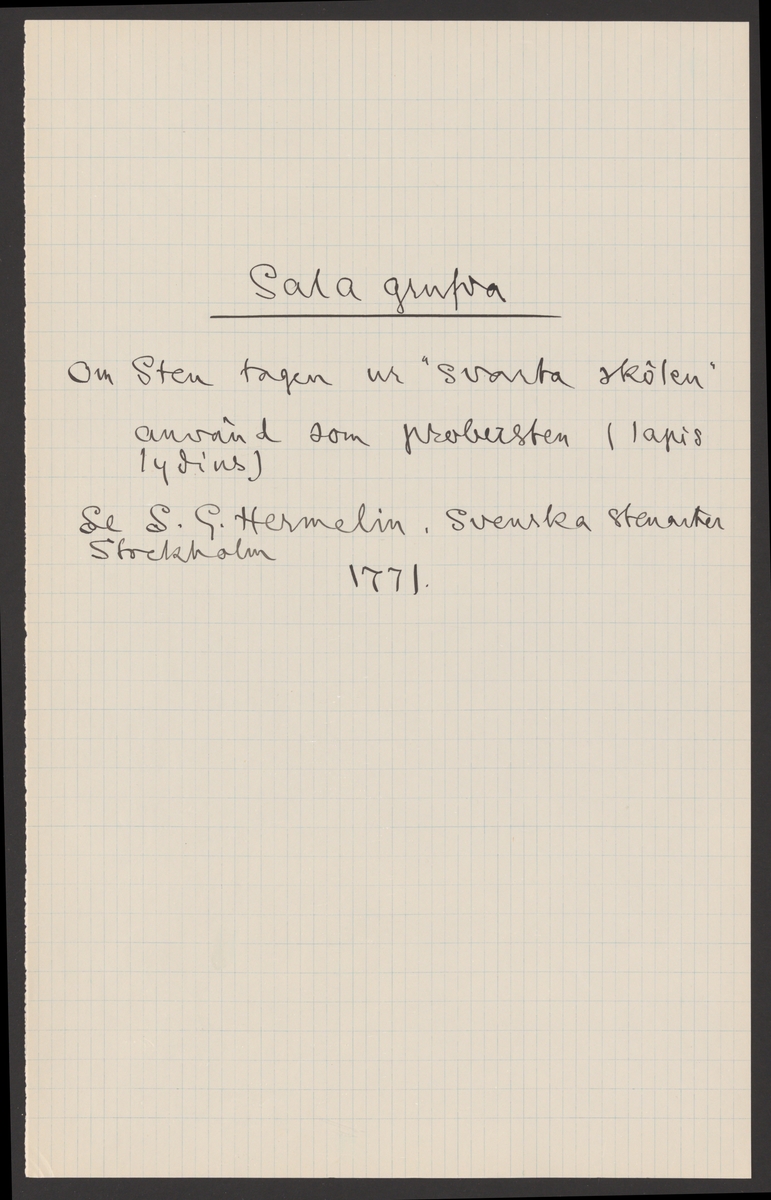 Sala grufva
Om Sten tagen ur "svarta skölen"
använd som probersten (lapis
lydius)
Se S. G. Hermelin, Svenska stenarter
Stockholm
1771.